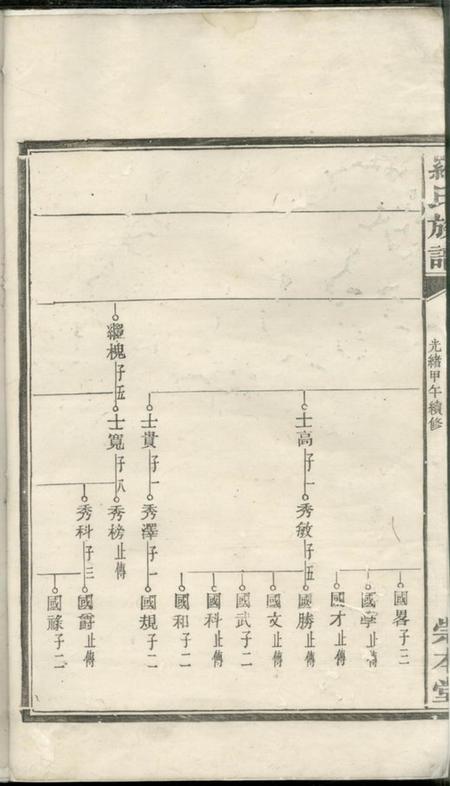 羅氏族譜
光緒甲午續修
崇本堂
國畧子三
國學止傳
國才止傳
士高子一
秀敏子五
國勝止傳
國文止傳
國武子二
國科止傳
國和子二
士貴子一
秀澤子一
國規子二
繼槐子五
士寬子八
秀榜止傳
秀科子三
國爵止傳
國祿子二